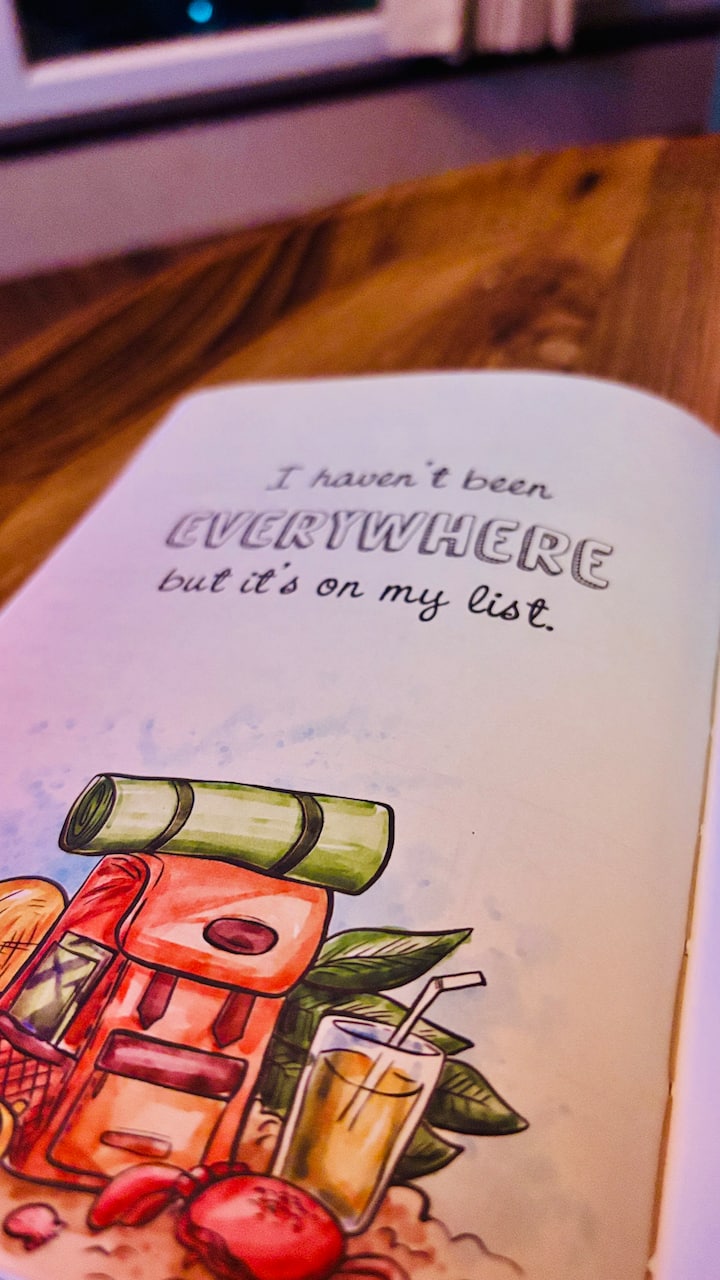 I haven't been
EVERYWHERE
but it's on my list.